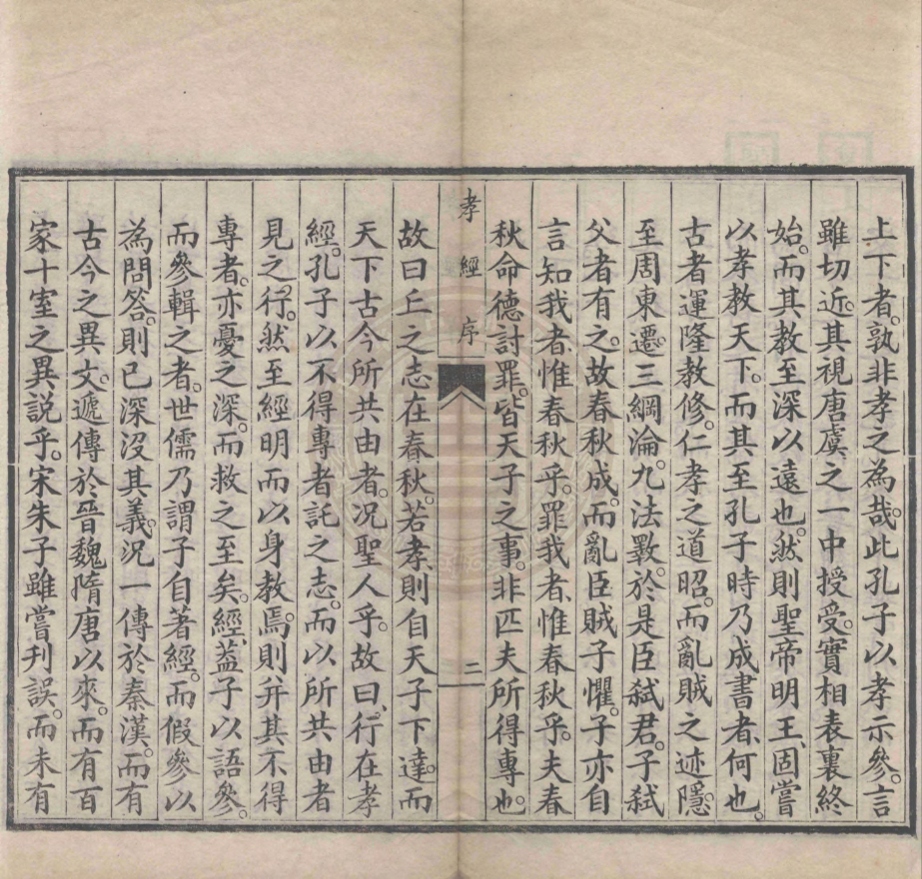 上下者。孰非孝之為哉。此孔子以孝示參。言
雖切近。其視唐虞之一中授受。實相表裏終
始。而其教至深以遠也。然則聖帝明王、固嘗
以孝教天下。而其至孔子時乃成書者、何也。
古者運隆教修。仁孝之道昭。而亂賊之迹隱。
至周東遷。三綱淪。九法斁。於是臣弒君。子弒
父者有之。故春秋成。而亂臣賊子懼。子亦自
言知我者、惟春秋乎。罪我者、惟春秋乎。夫春
秋命德討罪。皆天子之事。非匹夫所得專也。
孝經 序 二
故曰丘之志在春秋。若孝、則自天子下達。而
天下古今所共由者。況聖人乎。故曰、行在孝
經。孔子以不得專者託之志。而以所共由者
見之行。然至經明而以身教焉。則并其不得
專者。亦憂之深。而救之至矣。經、蓋子以語參。
而參輯之者。世儒乃謂子自著經。而假參以
為問答。則已深沒其義。況一傳於秦漢、而有
古今之異文。遞傳於晉魏隋唐以來。而有百
家十室之異說乎。宋朱子雖嘗刊誤。而未有